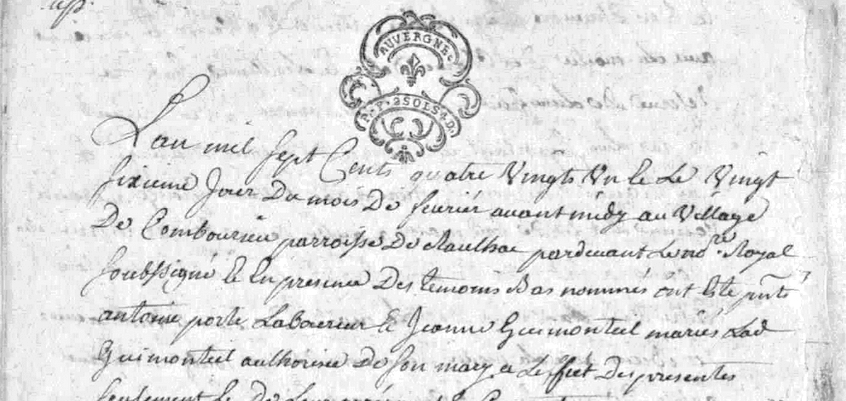 AUVERGNE.
P. 2 SOLS 4 D.
L'an mil sept Cents quatre Vingts Un & Le Vingt
sixieme Jour Du mois De fevrier avant midy au Village
De Comboursieu parroisse De Raulhac pardevant Le nore Royal
soubsigné & En presence Des temoins Bas nommés ont Esté pnts
antoine porte Laboureur & Jeanne Guimonteil mariés Lad
Guimonteil authorisée De son mary a L'effet Des presentes
seulement